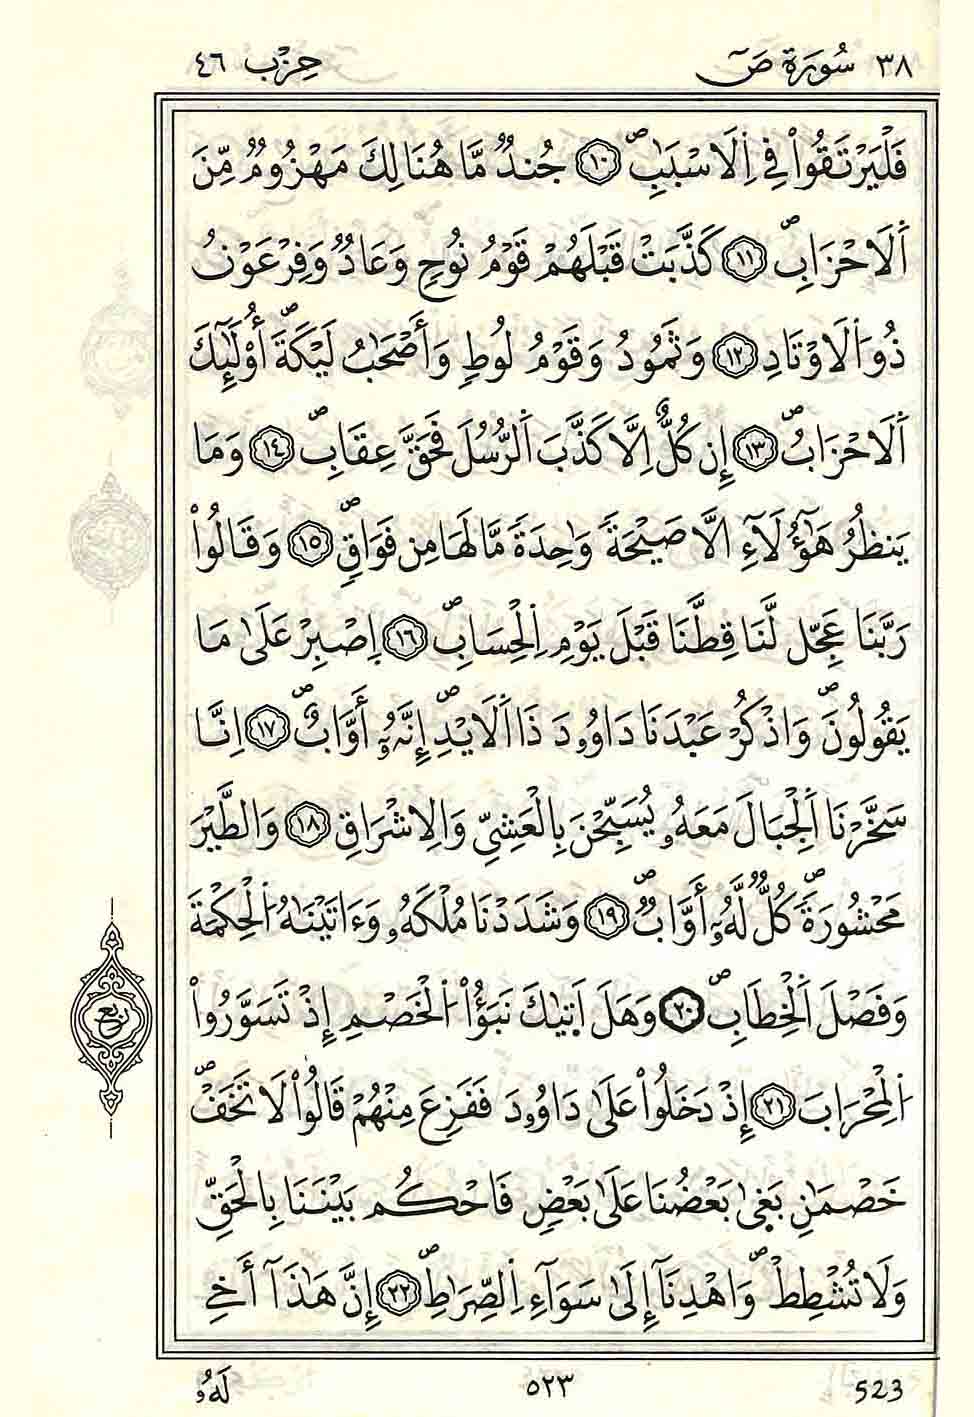 ٣٨ سُورَةُ صٓ حِزْب ٤٦
فَلْيَرْتَقُواْ فِي اِلَاسْبَٰبِۖ ١٠ جُندٞ مَّا هُنَالِكَ مَهْزُومٞ مِّنَ
اَلَاحْزَابِۖ ١١ كَذَّبَتْ قَبْلَهُمْ قَوْمُ نُوحٖ وَعَادٞ وَفِرْعَوْنُ
ذُو اُلَاوْتَادِ ١٢ وَثَمُودُ وَقَوْمُ لُوطٖ وَأَصْحَٰبُ لَيْكَةَۖ أُوْلَٰٓئِكَ
اَلَاحْزَابُۖ ١٣ إِن كُلٌّ اِلَّا كَذَّبَ اَلرُّسُلَ فَحَقَّ عِقَابِۖ ١٤ وَمَا
يَنظُرُ هَٰٓؤُلَآءِ الَّا صَيْحَةٗ وَٰحِدَةٗ مَّا لَهَا مِن فَوَاقٖۖ ١٥ وَقَالُواْ
رَبَّنَا عَجِّل لَّنَا قِطَّنَا قَبْلَ يَوْمِ اِلْحِسَابِۖ ١٦ اِصْبِرْ عَلَىٰ مَا
يَقُولُونَۖ وَاذْكُرْ عَبْدَنَا دَاوُۥدَ ذَا اَلَايْدِۖ إِنَّهُۥٓ أَوَّابٌۖ ١٧ اِنَّا
سَخَّرْنَا اَلْجِبَالَ مَعَهُۥ يُسَبِّحْنَ بِالْعَشِيِّ وَالِاشْرَاقِ ١٨ وَالطَّيْرَ
مَحْشُورَةٗۖ كُلّٞ لَّهُۥٓ أَوَّابٞۖ ١٩ وَشَدَدْنَا مُلْكَهُۥ وَءَاتَيْنَٰهُ اُلْحِكْمَةَ
وَفَصْلَ اَلْخِطَابِۖ ٢٠ وَهَلَ اَتٜىٰكَ نَبَؤُاْ اُلْخَصْمِ إِذْ تَسَوَّرُواْ
اُلْمِحْرَابَ ٢١ إِذْ دَخَلُواْ عَلَىٰ دَاوُۥدَ فَفَزِعَ مِنْهُمْ قَالُواْ لَا تَخَفْۖ
خَصْمَٰنِ بَغٜىٰ بَعْضُنَا عَلَىٰ بَعْضٖ فَاحْكُم بَيْنَنَا بِالْحَقِّ
وَلَا تُشْطِطْۖ وَاهْدِنَآ إِلَىٰ سَوَآءِ اِلصِّرَٰطِۖ ٢٢ إِنَّ هَٰذَآ أَخِي
رُبُع
523 ٥٢٣ لَهُۥ